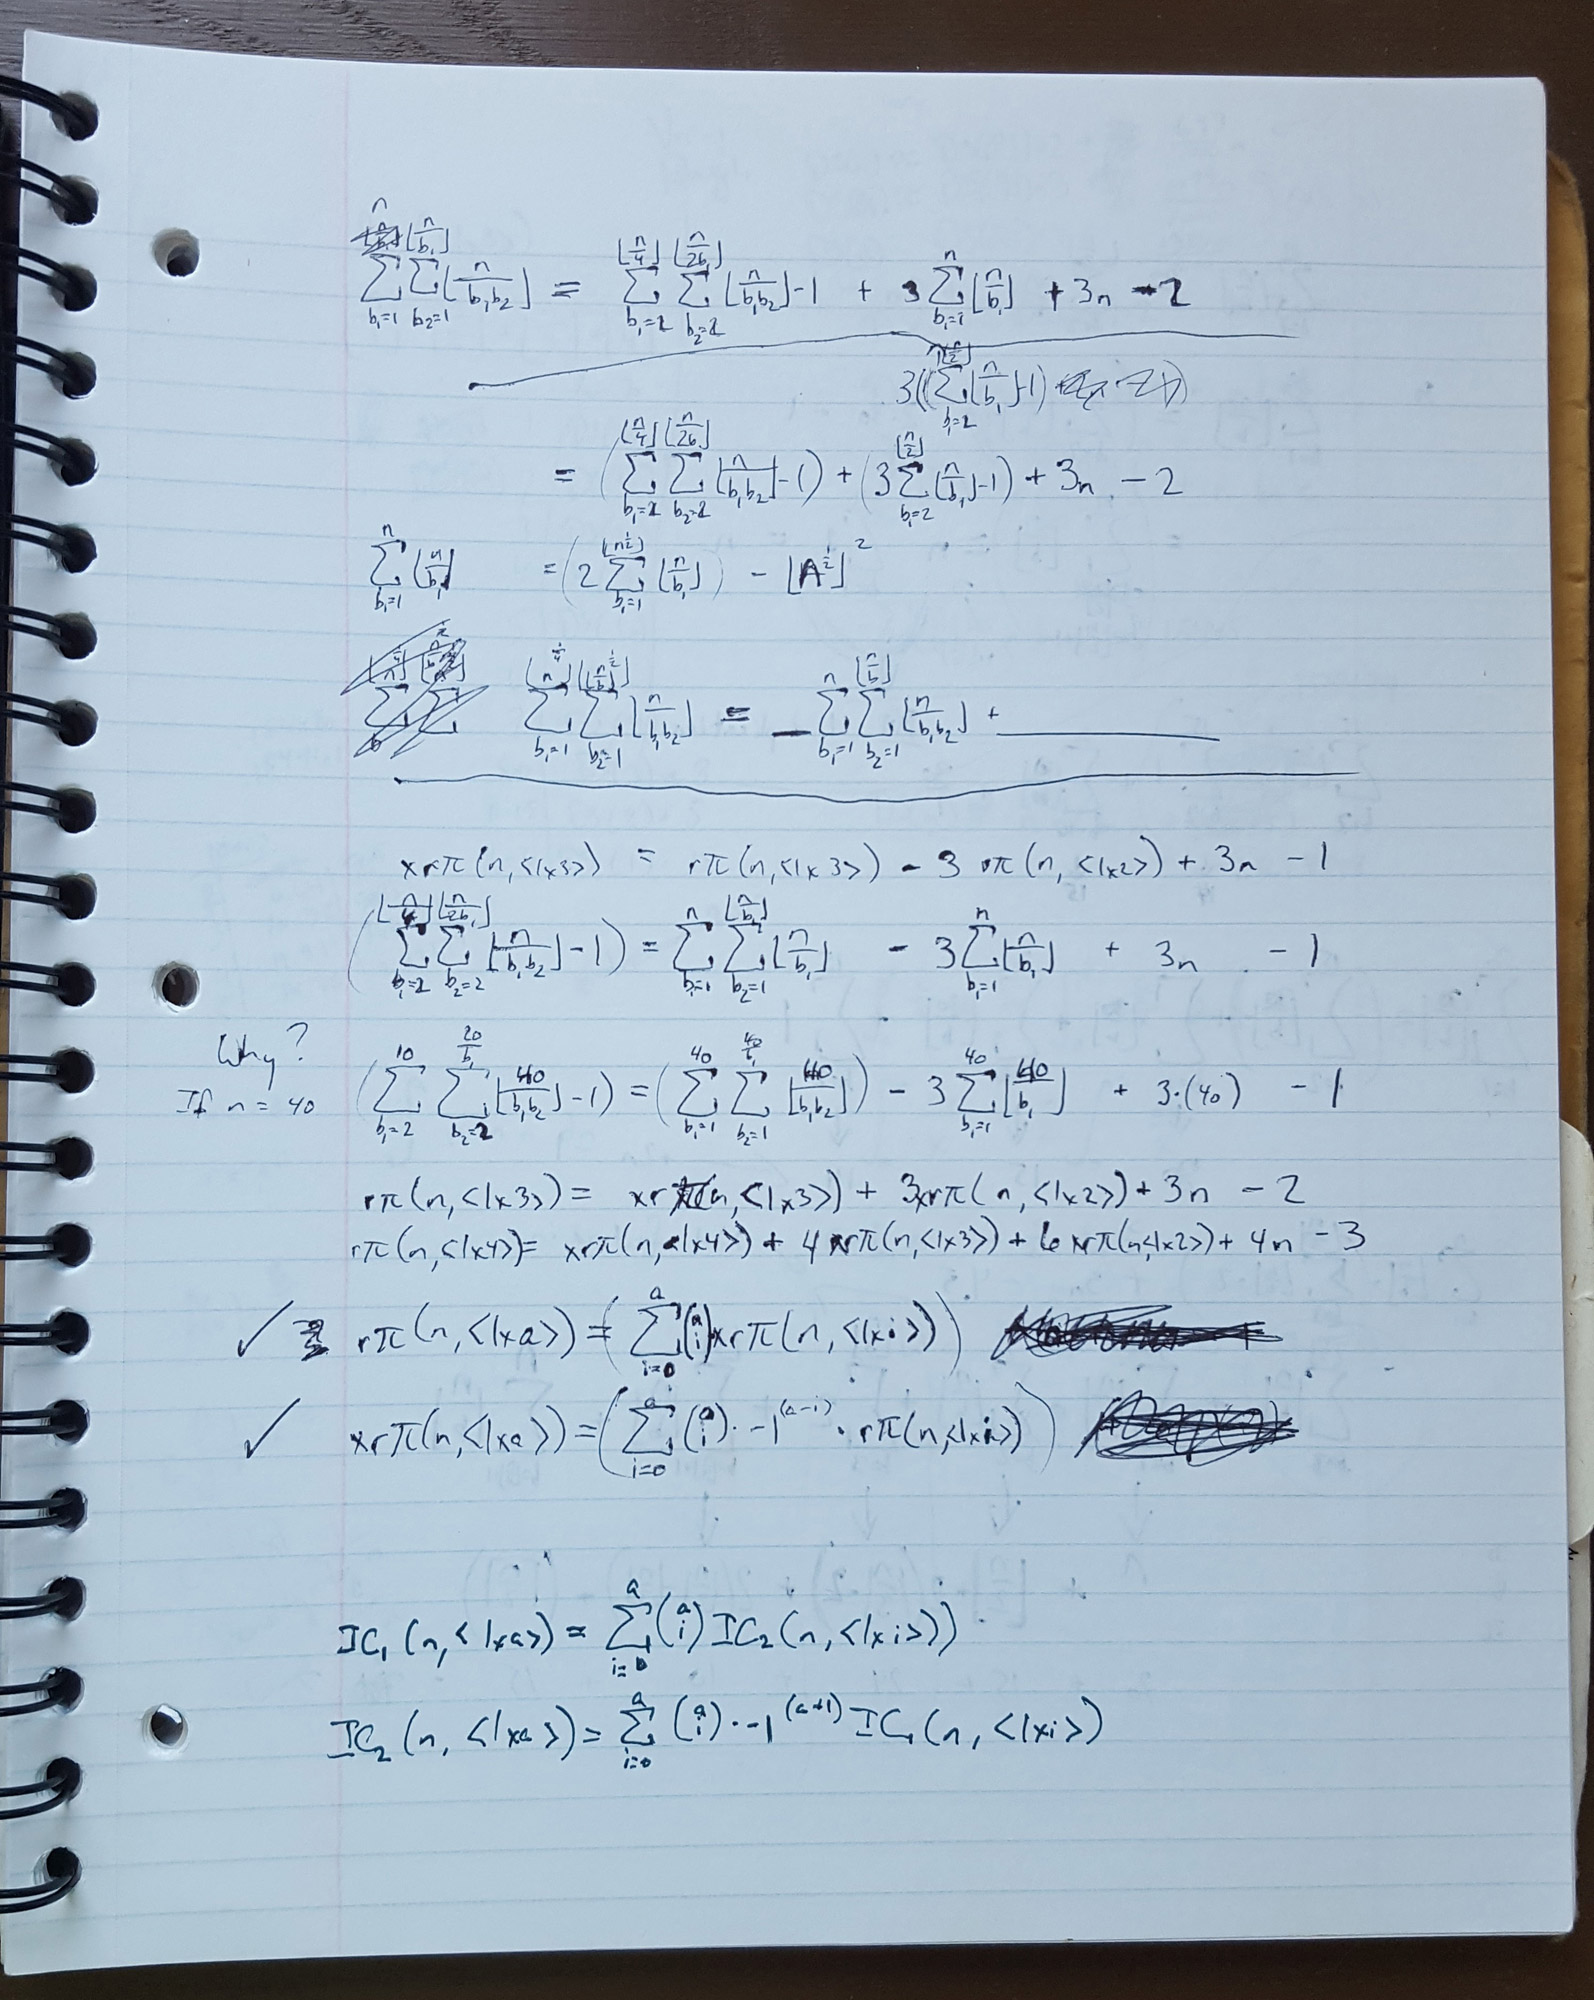 ∑_{b₁=1}^{n} ∑_{b₂=1}^{⌊n/b₁⌋} ⌊n/(b₁b₂)⌋ = ∑_{b₁=2}^{⌊n/4⌋} ∑_{b₂=2}^{⌊n/2b₁⌋} ⌊n/(b₁b₂)⌋-1 + 3 ∑_{b₁=1}^{n} ⌊n/b₁⌋ + 3n - 2
3((∑_{b₁=2}^{⌊n/2⌋} ⌊n/b₁⌋-1)
= (∑_{b₁=2}^{⌊n/4⌋} ∑_{b₂=2}^{⌊n/2b₁⌋} ⌊n/(b₁b₂)⌋-1) + (3 ∑_{b₁=2}^{⌊n/2⌋} ⌊n/b₁⌋-1) + 3n - 2
∑_{b₁=1}^{n} ⌊n/b₁⌋ = (2 ∑_{b₁=1}^{⌊n^{1/2}⌋} ⌊n/b₁⌋) - ⌊n^{1/2}⌋²
∑_{b₁=1} ∑_{b₂=1} ⌊n/(b₁b₂)⌋ = _ ∑_{b₁=1}^{n} ∑_{b₂=1}^{⌊n/b₁⌋} ⌊n/(b₁b₂)⌋ + ____
xrπ(n,<1x3>) = rπ(n,<1x3>) - 3 rπ(n,<1x2>) + 3n - 1
(∑_{b₁=2}^{⌊n/4⌋} ∑_{b₂=2}^{⌊n/2b₁⌋} ⌊n/(b₁b₂)⌋-1) = ∑_{b₁=1}^{n} ∑_{b₂=1}^{⌊n/b₁⌋} ⌊n/b₁⌋ - 3 ∑_{b₁=1}^{n} ⌊n/b₁⌋ + 3n - 1
Why?
If n = 40 (∑_{b₁=2}^{10} ∑_{b₂=2}^{20/b₁} ⌊40/(b₁b₂)⌋-1) = (∑_{b₁=1}^{40} ∑_{b₂=1}^{40/b₁} ⌊40/(b₁b₂)⌋) - 3 ∑_{b₁=1}^{40} ⌊40/b₁⌋ + 3·(40) - 1
rπ(n,<1x3>) = xrπ(n,<1x3>) + 3xrπ(n,<1x2>) + 3n - 2
rπ(n,<1x4>) = xrπ(n,<1x4>) + 4xrπ(n,<1x3>) + 6xrπ(n,<1x2>) + 4n - 3
✓ rπ(n,<1xa>) = (∑_{i=0}^{a} (a i) xrπ(n,<1xi>))
✓ xrπ(n,<1xa>) = (∑_{i=0}^{a} (a i)·-1^{(a-i)}·rπ(n,<1xi>))
IC₁(n,<1xa>) = ∑_{i=0}^{a} (a i) IC₂(n,<1xi>))
IC₂(n,<1xa>) = ∑_{i=0}^{a} (a i)·-1^{(a+1)} IC₁(n,<1xi>)